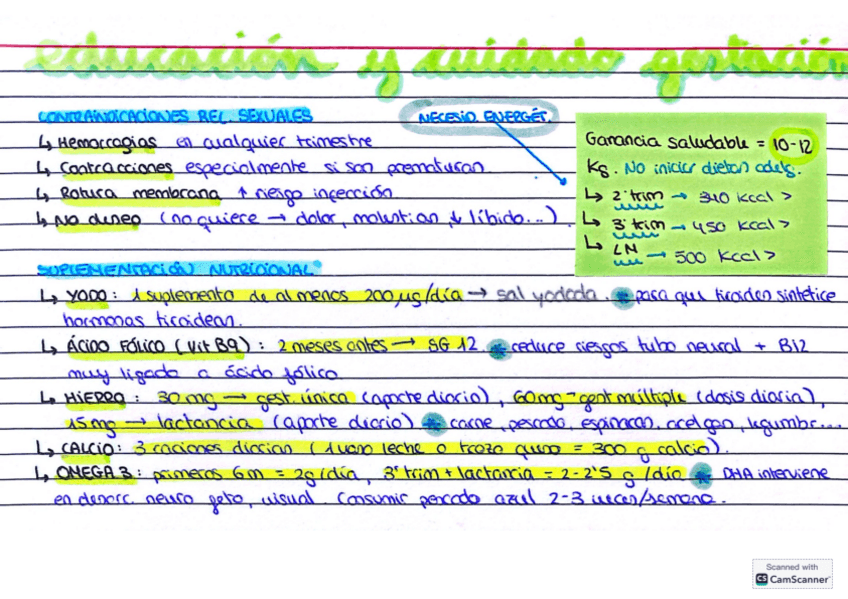 educación y cuidado gestación
CONTRAINDICACIONES REL. SEXUALES
↳ Hemorragias en cualquier trimestre
↳ Contracciones especialmente si son prematuras.
↳ Rotura membrana ↑ riesgo infección
↳ No deseo (no quiere → dolor, molestias, ↓ líbido...)
NECESID. ENERGÉT.
Ganancia saludable = 10-12
Kg. No iniciar dietas adelg.
↳ 2º trim → 340 Kcal >
↳ 3º trim → 450 Kcal >
↳ LN → 500 Kcal >
SUPLEMENTACIÓN NUTRICIONAL
↳ YODO: 1 suplemento de al menos 200 µg/día → sal yodada. * para que tiroides sintetice
hormonas tiroideas.
↳ ÁCIDO FÓLICO (Vit B9): 2 meses antes → SG 12. * reduce riesgos tubo neural + B12
muy ligada a ácido fólico.
↳ HIERRO: 30 mg → gest. única (aporte diario), 60mg → gest múltiple (dosis diaria),
15 mg → lactancia (aporte diario) * carne, pescado, espinacas, acelgas, legumbr...
↳ CALCIO: 3 raciones diarias (1 vaso leche o trozo queso = 300 g calcio).
↳ OMEGA 3: primeros 6m = 2g/día, 3º trim + lactancia = 2-2'5 g/día * DHA interviene
en desarr. neuro feto, visual. Consumir pescado azul 2-3 veces/semana.
Scanned with
CS CamScanner